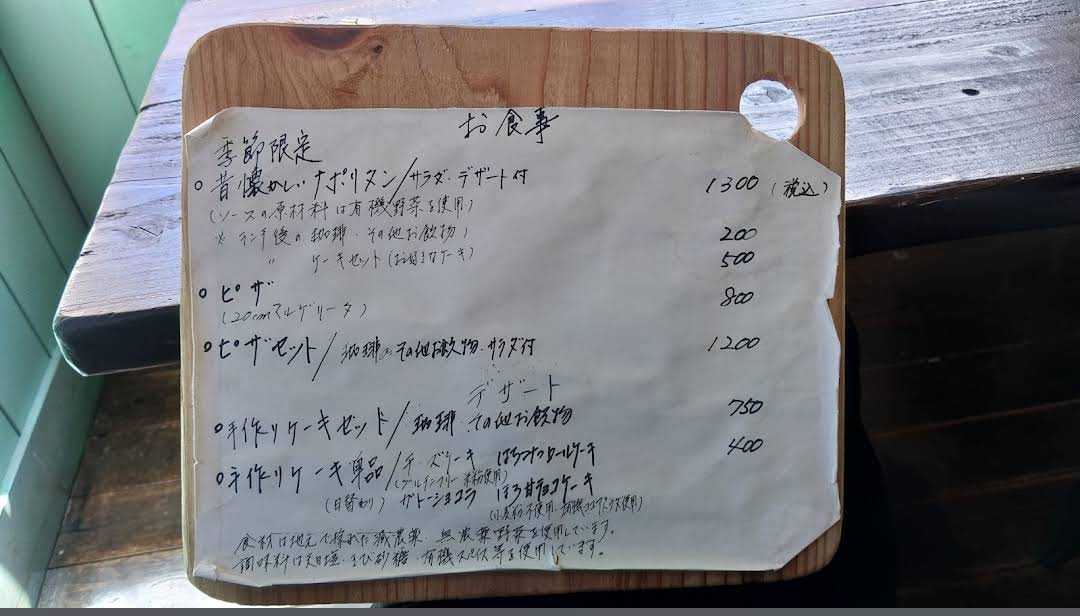 お食事
季節限定
○ 昔懐かしいナポリタン/サラダ・デザート付 1300 (税込)
(ソースの原材料は有機野菜を使用)
※ ランチ後の珈琲・その他お飲物) 200
〃 ケーキセット(お好きなケーキ) 500
○ ピザ 800
(20cmマルゲリータ)
○ ピザセット/珈琲 その他お飲物、サラダ付 1200
デザート
○手作りケーキセット/珈琲・その他お飲物 750
○手作りケーキ単品/チーズケーキ はちみつロールケーキ 400
(グルテンフリー 米粉使用)
(日替わり) ガトーショコラ ほろ甘チョコケーキ
(小麦粉不使用・有機 使用)
食材は地元で採れた減農薬、無農薬野菜を使用しています。
調味料は天日塩、きび砂糖、有機スパイス等を使用しています。